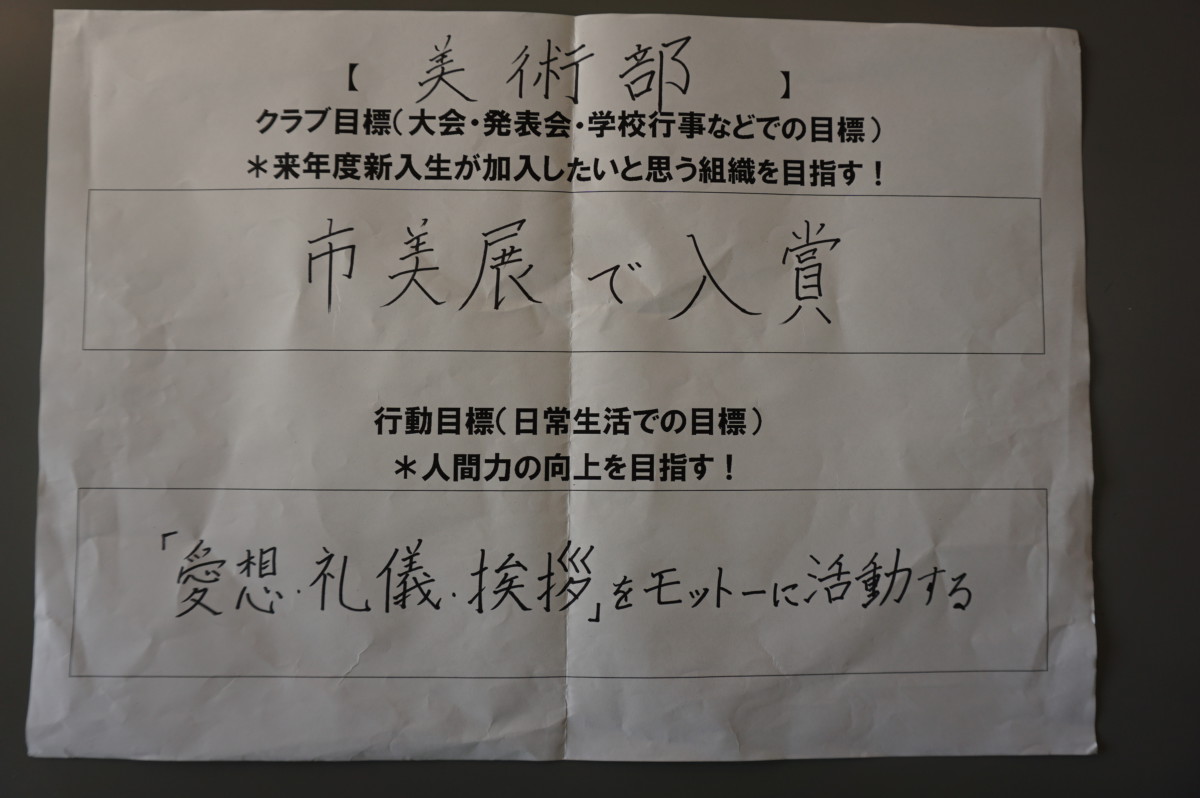 【 美術部 】
クラブ目標（大会・発表会・学校行事などでの目標）
＊来年度新入生が加入したいと思う組織を目指す！
市美展で入賞
行動目標（日常生活での目標）
＊人間力の向上を目指す！
「愛想・礼儀・挨拶」をモットーに活動する